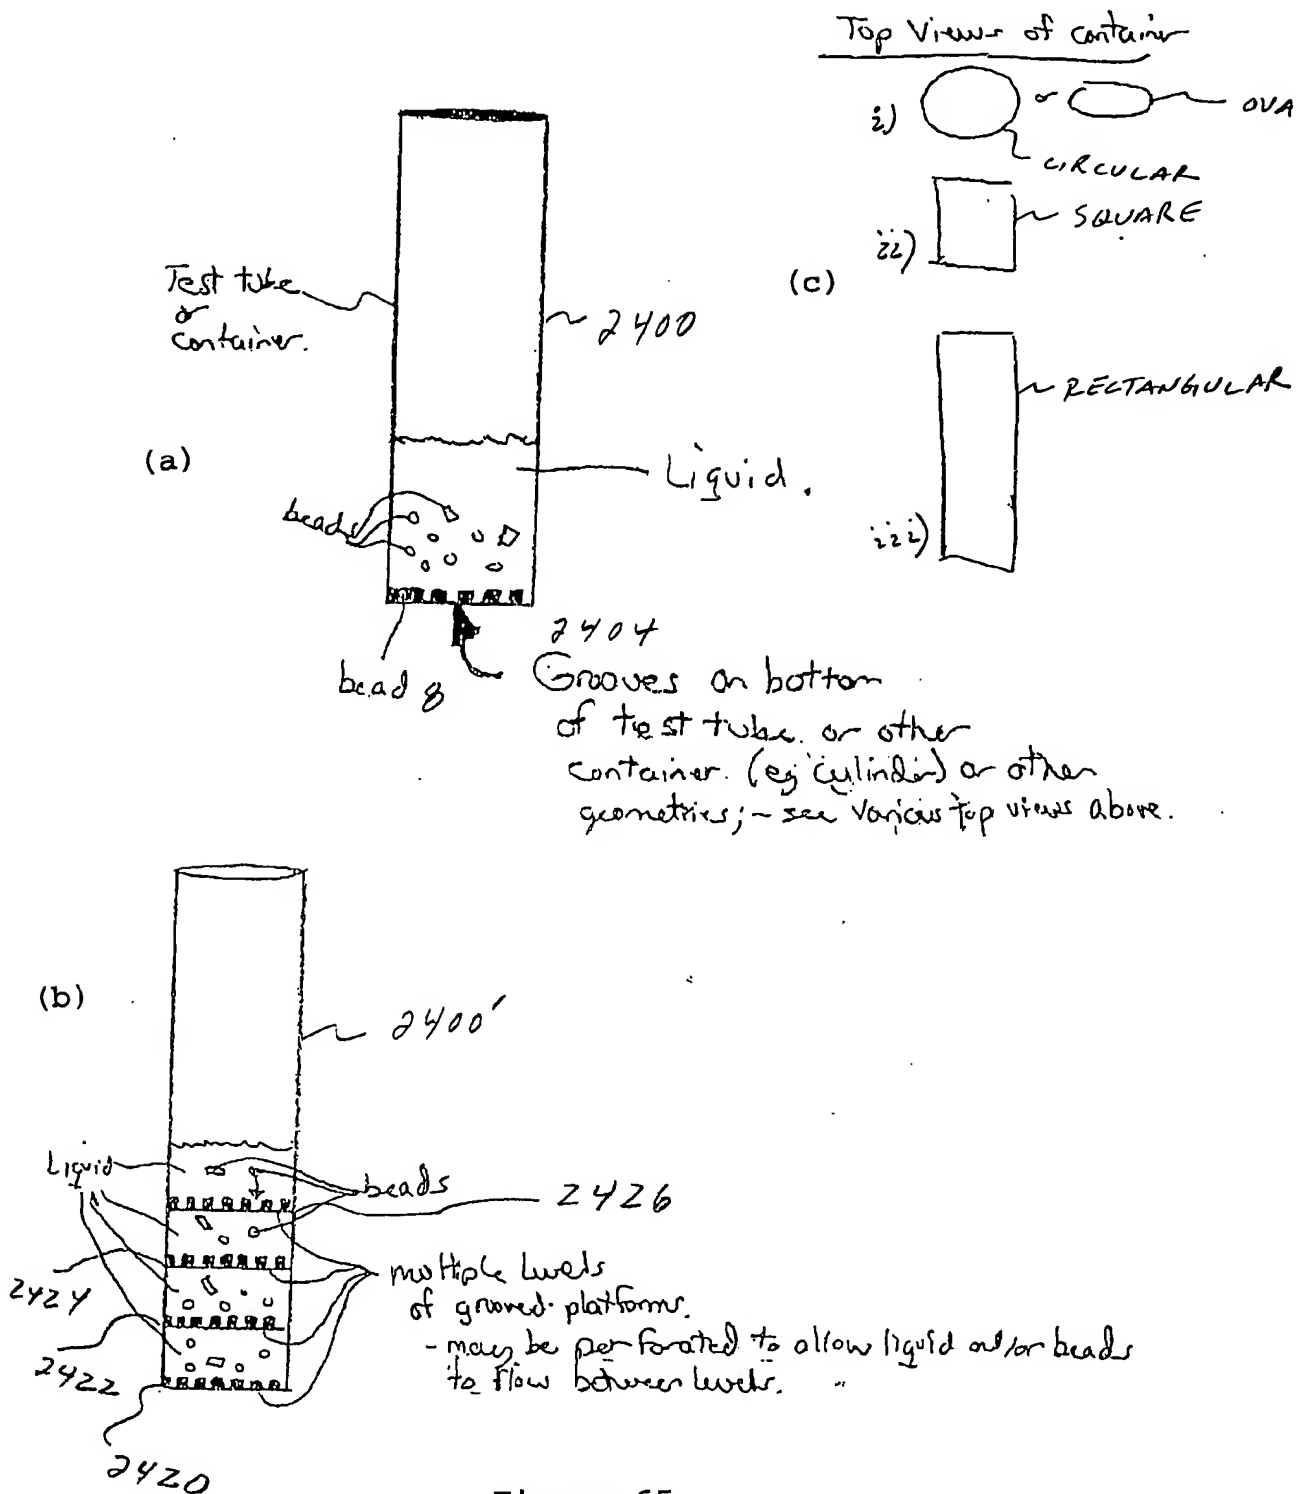 Top Views of container
i)
or
OVA
CIRCULAR
ii)
SQUARE
(c)
iii)
RECTANGULAR
Test tube
or
container.
2400
(a)
Liquid.
beads
bead 8
2404
Grooves on bottom
of test tube or other
container. (eg cylinder) or other
geometries; - see various top views above.
(b)
2400'
Liquid
beads
2426
2424
multiple levels
of grooved platforms.
- may be perforated to allow liquid and/or beads
to flow between levels.
2422
2420